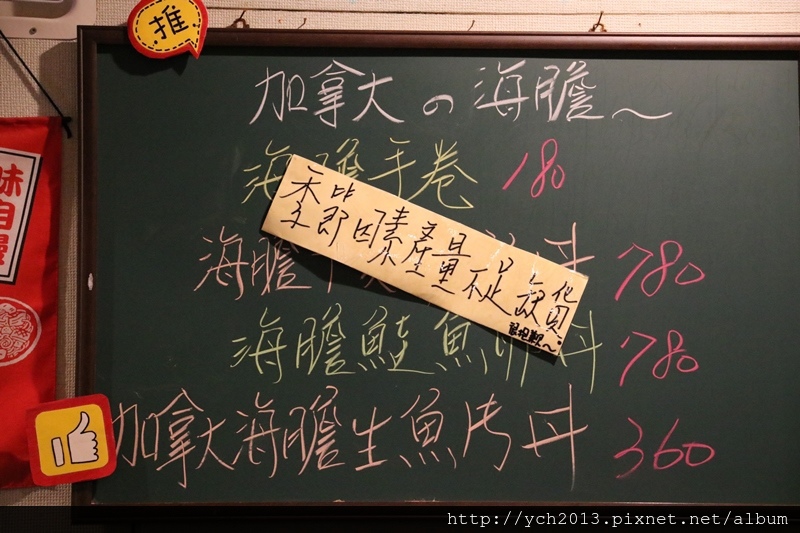 推
加拿大の海膽~
海膽手卷 180
季節因素產量不足 缺貨
很抱歉~
海膽 丼 780
海膽鮭魚卵丼 780
加拿大海膽生魚片丼 360
味自慢
http://ych2013.pixnet.net/album